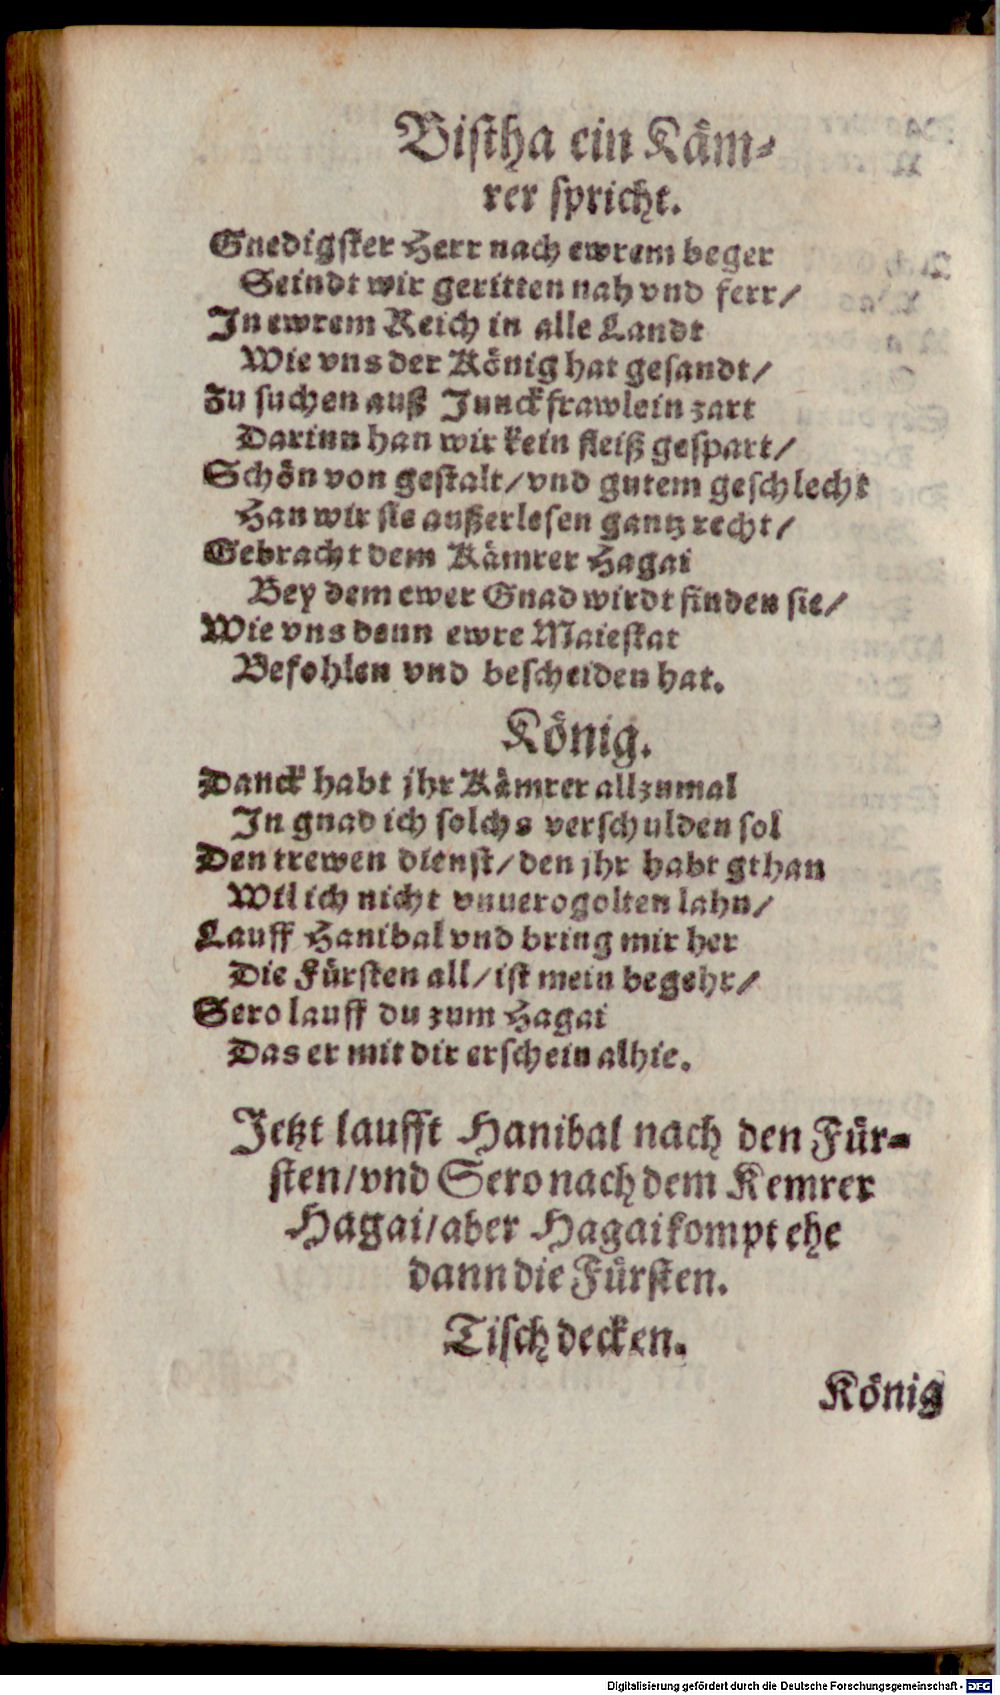 Bistha ein Käm-
rer spricht.
Gnedigster Herr nach ewrem beger
Seindt wir geritten nah vnd ferr/
In ewrem Reich in alle Landt
Wie vns der König hat gesandt/
Zu suchen auß Junckfrawlein zart
Darinn han wir kein fleiß gespart/
Schön von gestalt/vnd gutem geschlecht
Han wir sie außerlesen gantz recht/
Gebracht dem Kämrer Hagai
Bey dem ewer Gnad wirdt finden sie/
Wie vns denn ewre Maiestat
Befohlen vnd bescheiden hat.
König.
Danck habt jhr Kämrer allzumal
In gnad ich solchs verschulden sol
Den trewen dienst/den jhr habt gthan
Wil ich nicht vnuerogolten lahn/
Lauff Hanibal vnd bring mir her
Die Fürsten all/ist mein begehr/
Sero lauff du zum Hagai
Das er mit dir erschein alhie.
Jetzt laufft Hanibal nach den Für-
sten/vnd Sero nach dem Kemrer
Hagai/aber Hagai kompt ehe
dann die Fürsten.
Tisch decken.
König
Digitalisierung gefördert durch die Deutsche Forschungsgemeinschaft - DFG